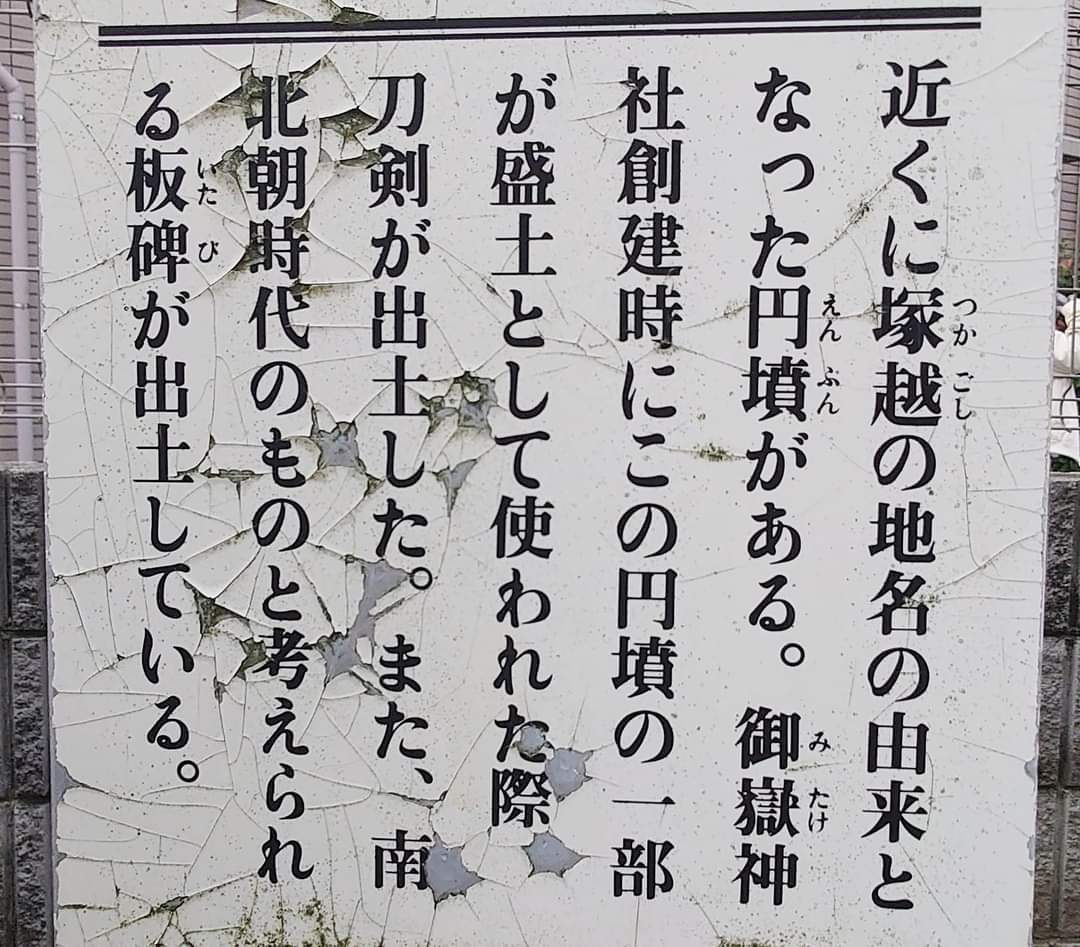 近くに塚越の地名の由来と
なった円墳がある。御嶽神
社創建時にこの円墳の一部
が盛土として使われた際
刀剣が出土した。また、南
北朝時代のものと考えられ
る板碑が出土している。
つか ごし
えん ぷん
み たけ
いた び